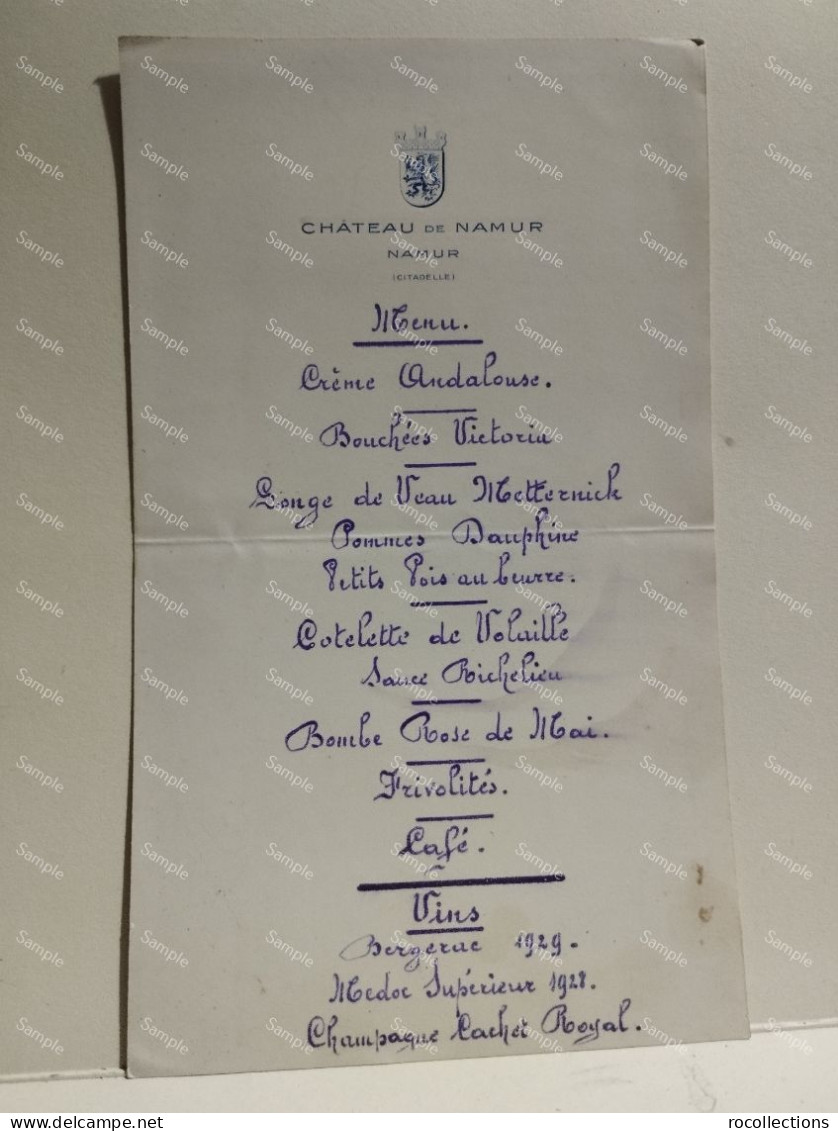 CHÂTEAU DE NAMUR
NAMUR
(CITADELLE)
Menu.
Crème Andalouse.
Bouchées Victoria
Longe de Veau Metternick
Pommes Dauphine
Petits Pois au beurre.
Cotelette de Volaille
Sauce Richelieu
Bombe Rose de Mai.
Frivolités.
Café.
Vins
Bergerac 1929.
Medoc Supérieur 1928.
Champagne Cachet Royal.
rocollections